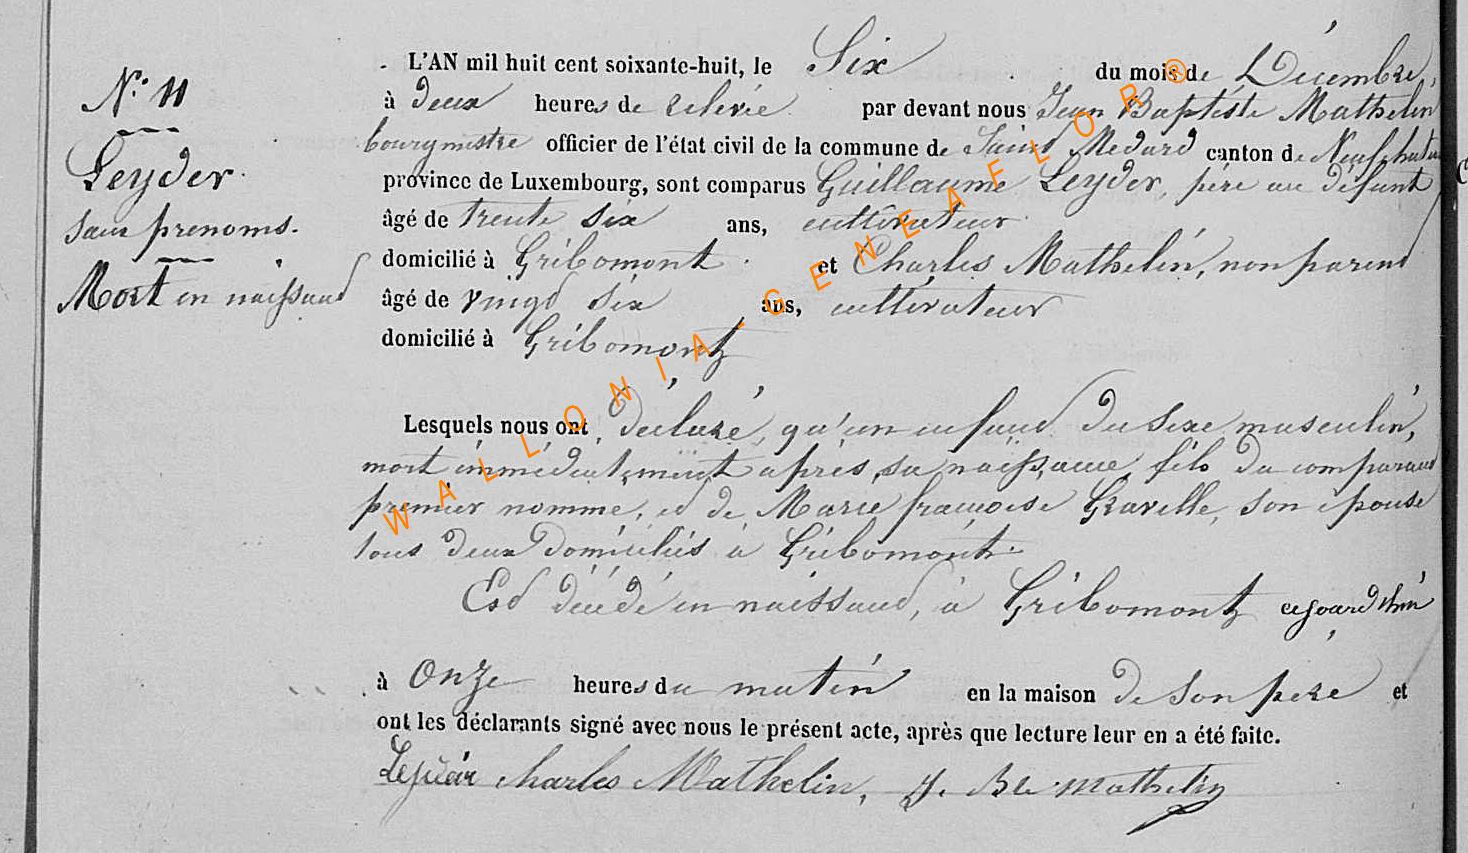 N° 11
Leyder
sans prenoms.
Mort en naissand
L'AN mil huit cent soixante-huit, le Six du mois de Décembre,
à deux heures de relevée par devant nous Jean Baptiste Mathelin
bourgmestre officier de l'état civil de la commune de Saind Medard canton de Neufchateau
province de Luxembourg, sont comparus Guillaume Leyder, père au défunt
âgé de trente six ans, cultivateur
domicilié à Gribomont et Charles Mathelin, non parend
âgé de vingd six ans, cultivateur
domicilié à Gribomont
Lesquels nous ont déclaré, qu'un enfand du sexe masculin,
mort immédiatement après sa naissance, fils du comparand
premier nommé, ed de Marie françoise Gravelle, son épouse
tous deux domiciliés à Gribomont.
Esd décédé en naissand, à Gribomont aujourd'hui
à Onze heures du matin en la maison de son père et
ont les déclarants signé avec nous le présent acte, après que lecture leur en a été faite.
charles Mathelin, J. Bte Mathelin
WALLONIA-GENEAFLOR®